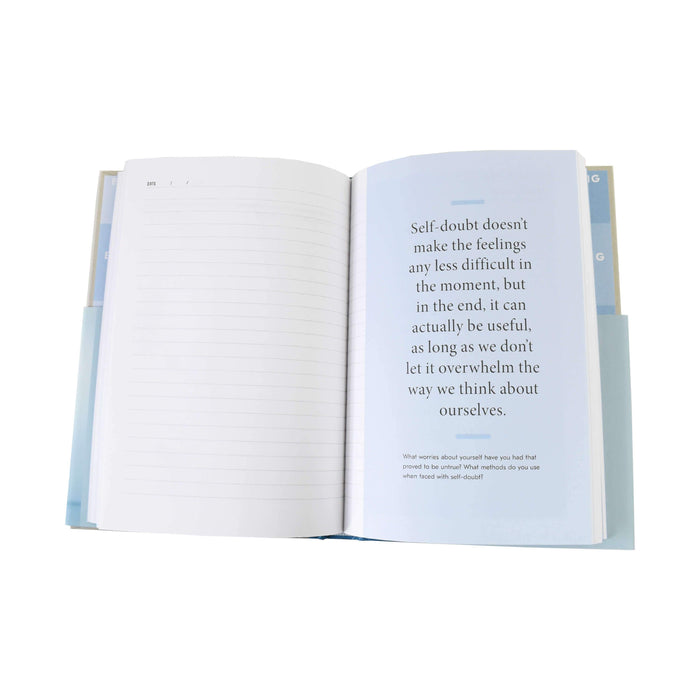 DATE / /
Self-doubt doesn't
make the feelings
any less difficult in
the moment, but
in the end, it can
actually be useful,
as long as we don't
let it overwhelm the
way we think about
ourselves.
What worries about yourself have you had that
proved to be untrue? What methods do you use
when faced with self-doubt?
NG
G